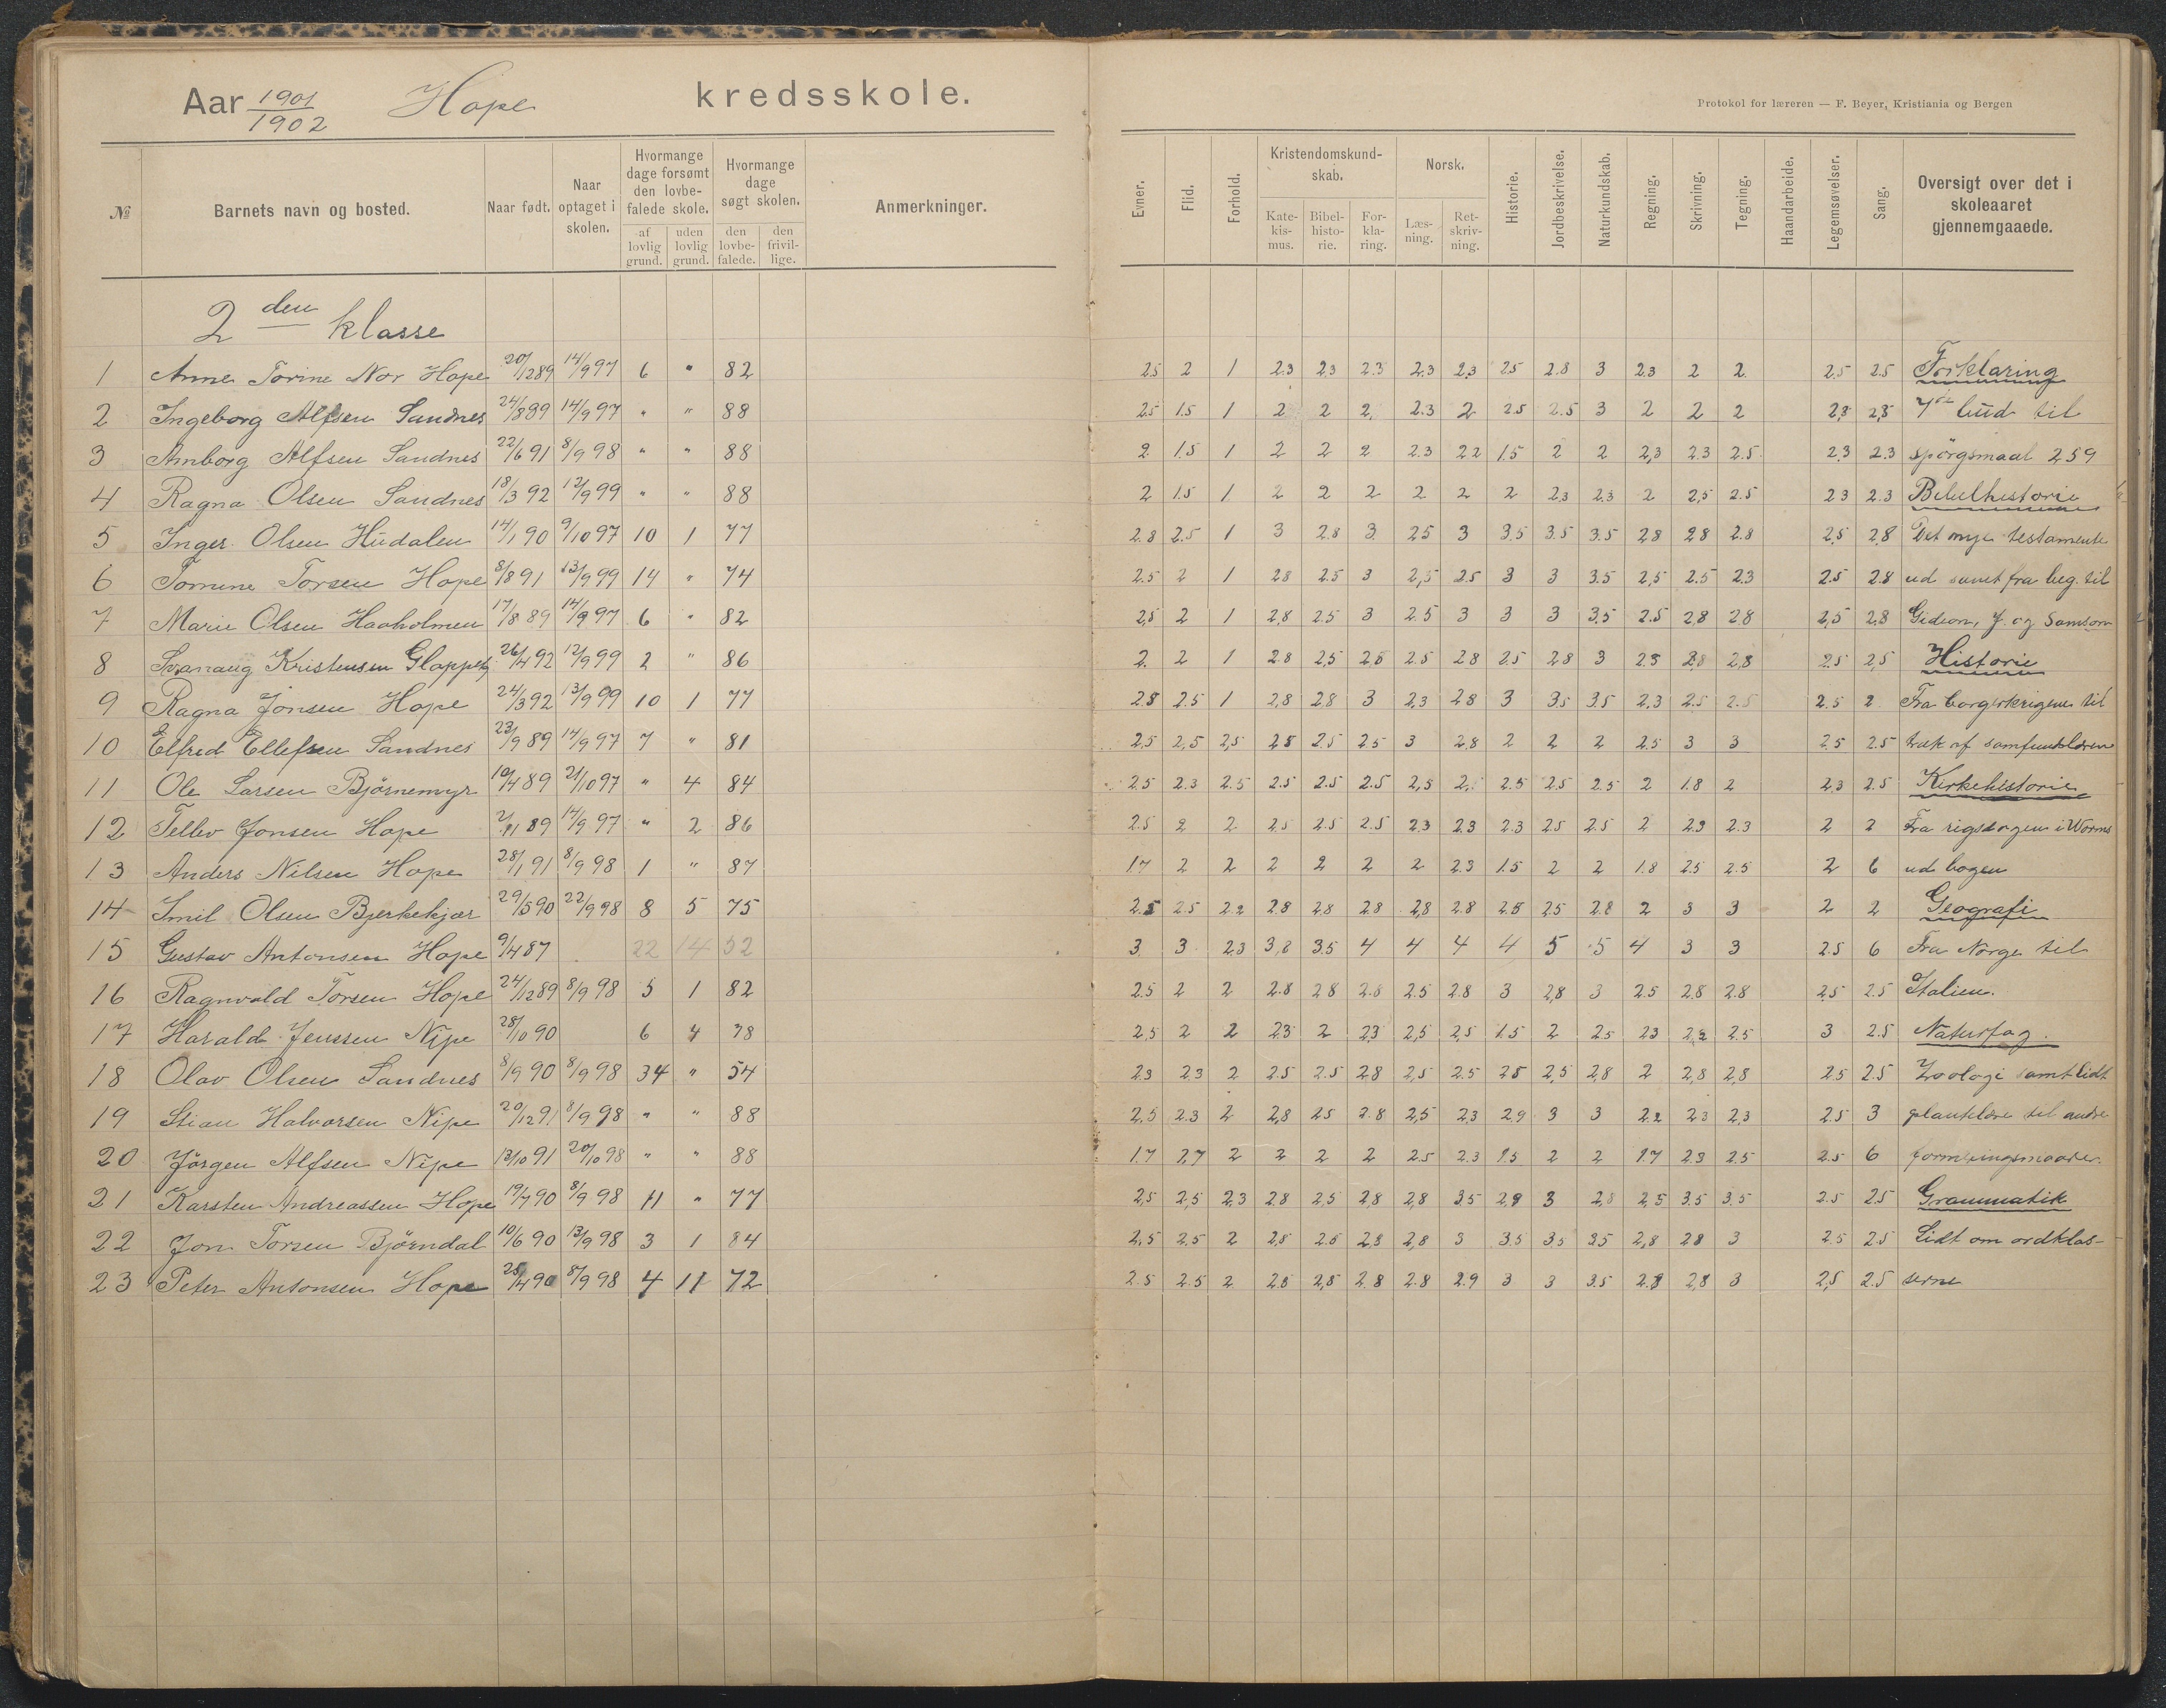 Aar 1901/1902 Hope kredsskole.
Protokol for læreren — F. Beyer, Kristiania og Bergen
№ Barnets navn og bosted. Naar født. Naar optaget i skolen. Hvormange dage forsømt den lovbefalede skole. af lovlig grund. uden lovlig grund. Hvormange dage søgt skolen. den lovbefalede. den frivillige. Anmerkninger.
Evner. Flid. Forhold. Kristendomskundskab. Katekismus. Bibelhistorie. Forklaring. Norsk. Læsning. Retskrivning. Historie. Jordbeskrivelse. Naturkundskab. Regning. Skrivning. Tegning. Haandarbeide. Legemsøvelser. Sang. Oversigt over det i skoleaaret gjennemgaaede.
2den klasse
1 Anne Torine Nor Hope 20/12 89 14/9 97 6 " 82 2.5 2 1 2.3 2.3 2.3 2.3 2.3 2.5 2.8 3 2.3 2 2 2.5 2.5 Forklaring
2 Ingeborg Alfsen Sandnes 24/8 89 14/9 97 " " 88 2.5 1.5 1 2 2 2 2.3 2 2.5 2.5 3 2 2 2 2,3 2,5 7de bud til
3 Amborg Alfsen Sandnes 22/6 91 8/9 98 " " 88 2 1.5 1 2 2 2 2.3 2.2 1.5 2 2 2,3 2.3 2.5 2.3 2.3 spörgsmaal 259
4 Ragna Olsen Sandnes 18/3 92 12/9 99 " " 88 2 1.5 1 2 2 2 2 2 2 2,3 2.3 2 2,5 2.5 2.3 2.3 Bibelhistorie
5 Inger Olsen Hudalen 14/1 90 9/10 97 10 1 77 2.8 2.5 1 3 2.8 3 2.5 3 3.5 3.5 3.5 2.8 2.8 2.8 2,5 2,8 Det nye testamente
6 Tomine Torsen Hope 8/8 91 13/9 99 14 " 74 2.5 2 1 2.8 2.5 3 2,5 2.5 3 3 3.5 2,5 2.5 2.3 2.5 2.8 ud samt fra beg. til
7 Marie Olsen Haaholmen 17/8 89 14/9 97 6 " 82 2,5 2 1 2,8 2.5 3 2.5 3 3 3 3.5 2.5 2.8 2.8 2,5 2,8 Gideon, J. og Samson
8 Svanaug Kristensen 26/4 92 12/9 99 2 " 86 2 2 1 2.8 2,5 2.5 2.5 2.8 2.5 2.8 3 2.3 2.8 2,8 2.5 2,5 Historie
9 Ragna Jonsen Hope 24/3 92 13/9 99 10 1 77 2.8 2.5 1 2,8 2.8 3 2,3 2.8 3 3.5 3.5 2.3 2.5 2.5 2.5 2 Fra borgerkrigene til
10 Elfred Ellefsen Sandnes 23/9 89 14/9 97 7 " 81 2,5 2,5 2,5 2.8 2.5 2.5 3 2.8 2 2 2 2.5 3 3 2.5 2.5 træk af samfundslæren
11 Ole Larsen Bjørnemyr 10/4 89 21/10 97 " 4 84 2.5 2.3 2.5 2.5 2.5 2.5 2,5 2.5 2.5 2.5 2 1.8 2 2,3 2.5 Kirkehistorie
12 Tellev Jonsen Hope 2/11 89 14/9 97 " 2 86 2.5 2 2 2.5 2.5 2.5 2.3 2.3 2.3 2.5 2.5 2 2.3 2.3 2 2 Fra rigsdagen i Worms
13 Anders Nilsen Hope 28/1 91 8/9 98 1 " 87 1.7 2 2 2 2 2 2 2.3 1.5 2 2 1.8 2.5 2.5 2 6 ud bogen
14 Emil Olsen Bjerkekjær 29/5 90 22/9 98 8 5 75 2.5 2.5 2.2 2.8 2.8 2.8 2,8 2.8 2.8 2.5 2.8 2 3 3 2 2 Geografi
15 Gustav Antonsen Hope 9/4 87 22 14 52 3 3 2.3 3,8 3.5 4 4 4 4 5 5 4 3 3 2.5 6 Fra Norge til
16 Ragnvald Torsen Hope 24/12 89 8/9 98 5 1 82 2.5 2 2 2.8 2.8 2.8 2.5 2.8 3 2,8 3 2.5 2,8 2.8 2.5 2.5 Italien.
17 Harald Jenssen Nipe 28/10 90 6 4 78 2,5 2 2 2.3 2 2.3 2,5 2,5 1.5 2 2.5 2.3 2.2 2.5 3 2.5 Naturfag.
18 Olav Olsen Sandnes 8/9 90 8/9 98 34 " 54 2.3 2.3 2 2.5 2.5 2.8 2,5 2.5 2.5 2,5 2,8 2 2,8 2,8 2.5 2.5 Zoologi samt lidt
19 Stian Halvorsen Nipe 20/12 91 8/9 98 " " 88 2,5 2.3 2 2,8 2.5 2.8 2,5 2,3 2.9 3 3 2.2 2.3 2,3 2.5 3 plantelære til andre
20 Jörgen Alfsen Nipe 13/10 91 20/10 98 " " 88 1.7 2.7 2 2 2 2 2.5 2.3 1.5 2 2 1.7 2.3 2.5 2.5 6 formeringsmaader.
21 Karsten Andreassen Hope 19/7 90 8/9 98 11 " 77 2,5 2,5 2,3 2.8 2,5 2,8 2,8 3.5 2,9 3 2,8 2,5 3.5 3.5 2.5 2.5 Grammatik
22 Jon Torsen Bjørndal 10/6 90 13/9 98 3 1 84 2,5 2,5 2 2,8 2.5 2,8 2,8 3 3.5 3.5 3.5 2,8 2.8 3 2.5 2.5 Lidt om ordklas-
23 Peter Antonsen Hope 25/4 90 8/9 98 4 11 72 2.5 2.5 2 2.8 2,8 2.8 2.8 2.9 3 3 3.5 2.8 2,8 3 2,5 2.5 serne